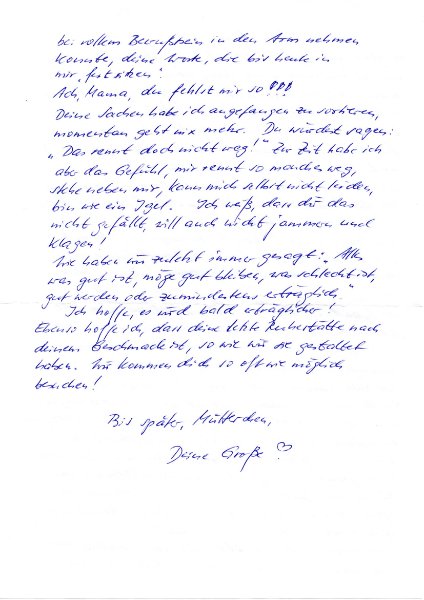 bei vollem Bewußtsein in den Arm nehmen
konnte, deine Worte, die bis heute in
mir „festsitzen“.
Ach, Mama, du fehlst mir so!!!
Deine Sachen habe ich angefangen zu sortieren,
momentan geht nix mehr. Du würdest sagen:
„Das rennt doch nicht weg!“ Zur Zeit habe ich
aber das Gefühl, mir rennt so manches weg,
stehe neben mir, kann mich selbst nicht leiden,
bin wie ein Igel. Ich weiß, dass dir das
nicht gefällt, will auch nicht jammern und
klagen!
Wie haben wir zuletzt immer gesagt: „Alles
was gut ist, möge gut bleiben, was schlecht ist,
gut werden oder zumindestens erträglich.“
Ich hoffe, es wird bald erträglicher!
Ebenso hoffe ich, dass deine letzte Ruhestätte nach
deinem Geschmack ist, so wie wir sie gestaltet
haben. Wir kommen dich so oft wie möglich
besuchen!
Bis später, Mütterchen,
Deine Große ♡